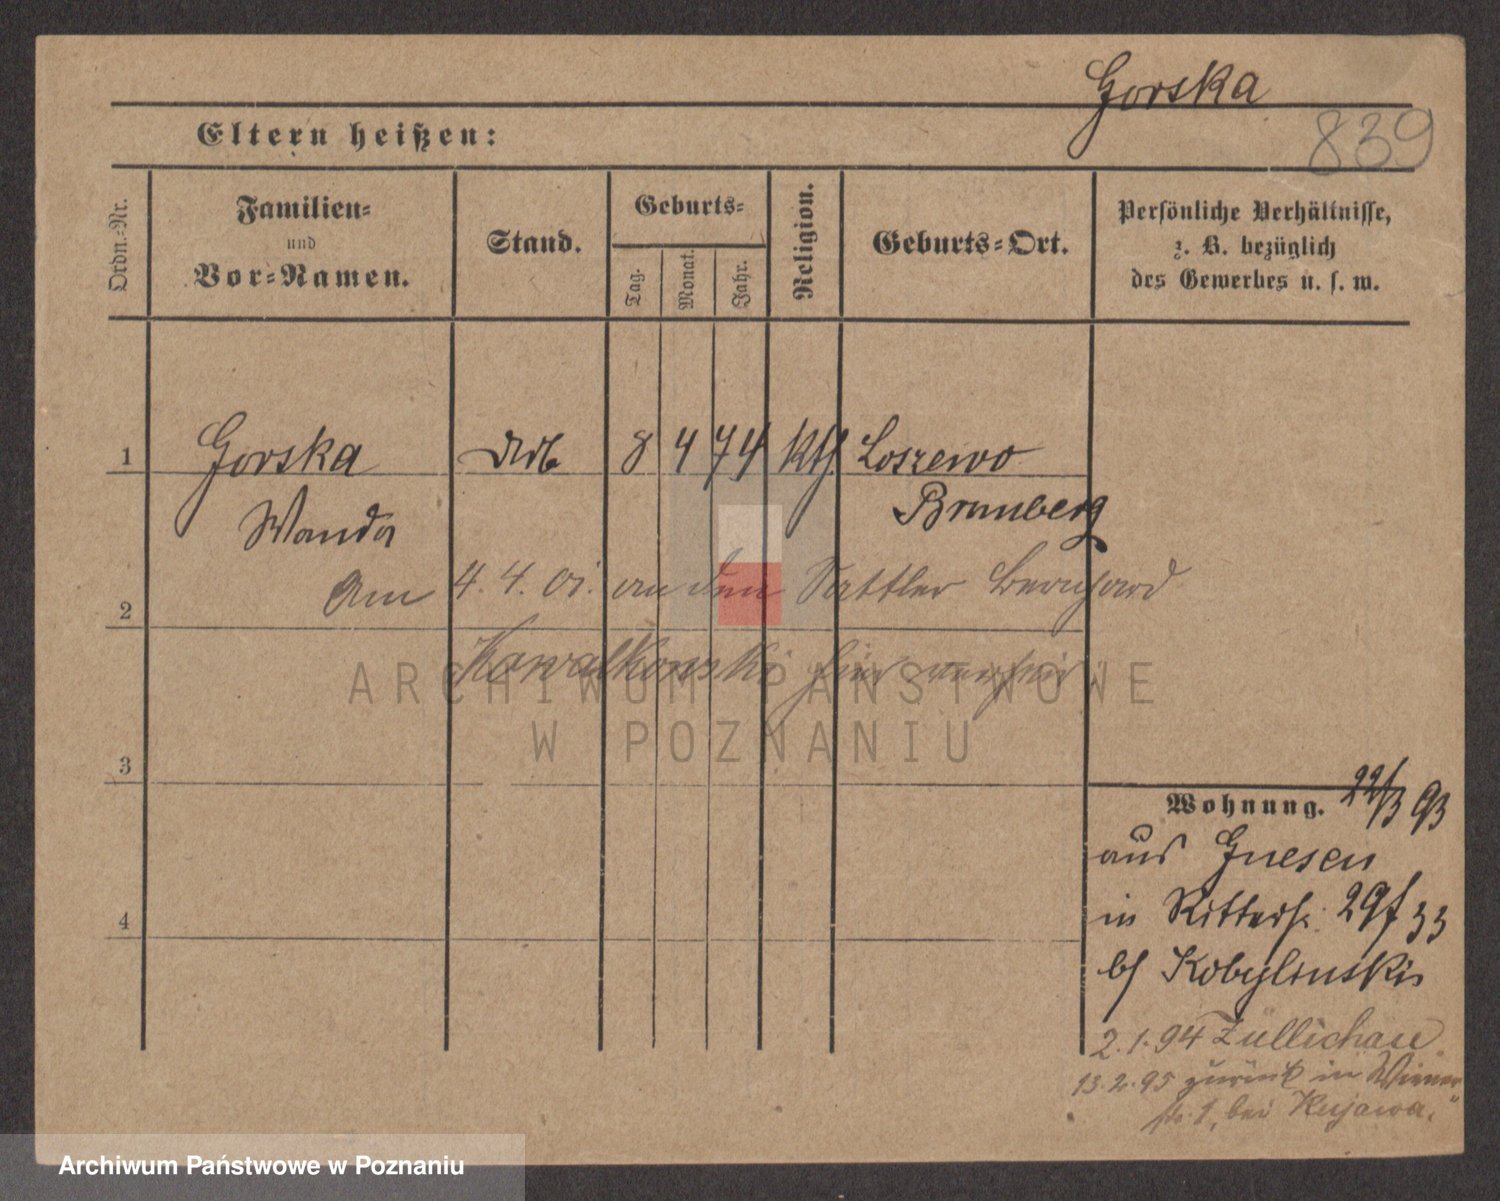 Gorska
839
Eltern heißen:
Ordn.-Nr.
Familien-
und
Vor-Namen.
Stand.
Geburts-
Tag.
Monat.
Jahr.
Religion.
Geburts-Ort.
Persönliche Verhältnisse,
z. B. bezüglich
des Gewerbes u. s. w.
1 Gorska 8 4 74 kth Loszewo
Wanda Bromberg
2 Am 4. 4. 01. an den Sattler Bernhard
Kowalkowski hier verheir
ARCHIWUM PAŃSTWOWE
W POZNANIU
3
4
Wohnung. 22/3 93
aus Gnesen
in Ritterst. 29
b/ Kobylinski
2.1.94 Züllichau
13.2.95 zurück in Wiener
str. 1, bei Kujawa.
Archiwum Państwowe w Poznaniu